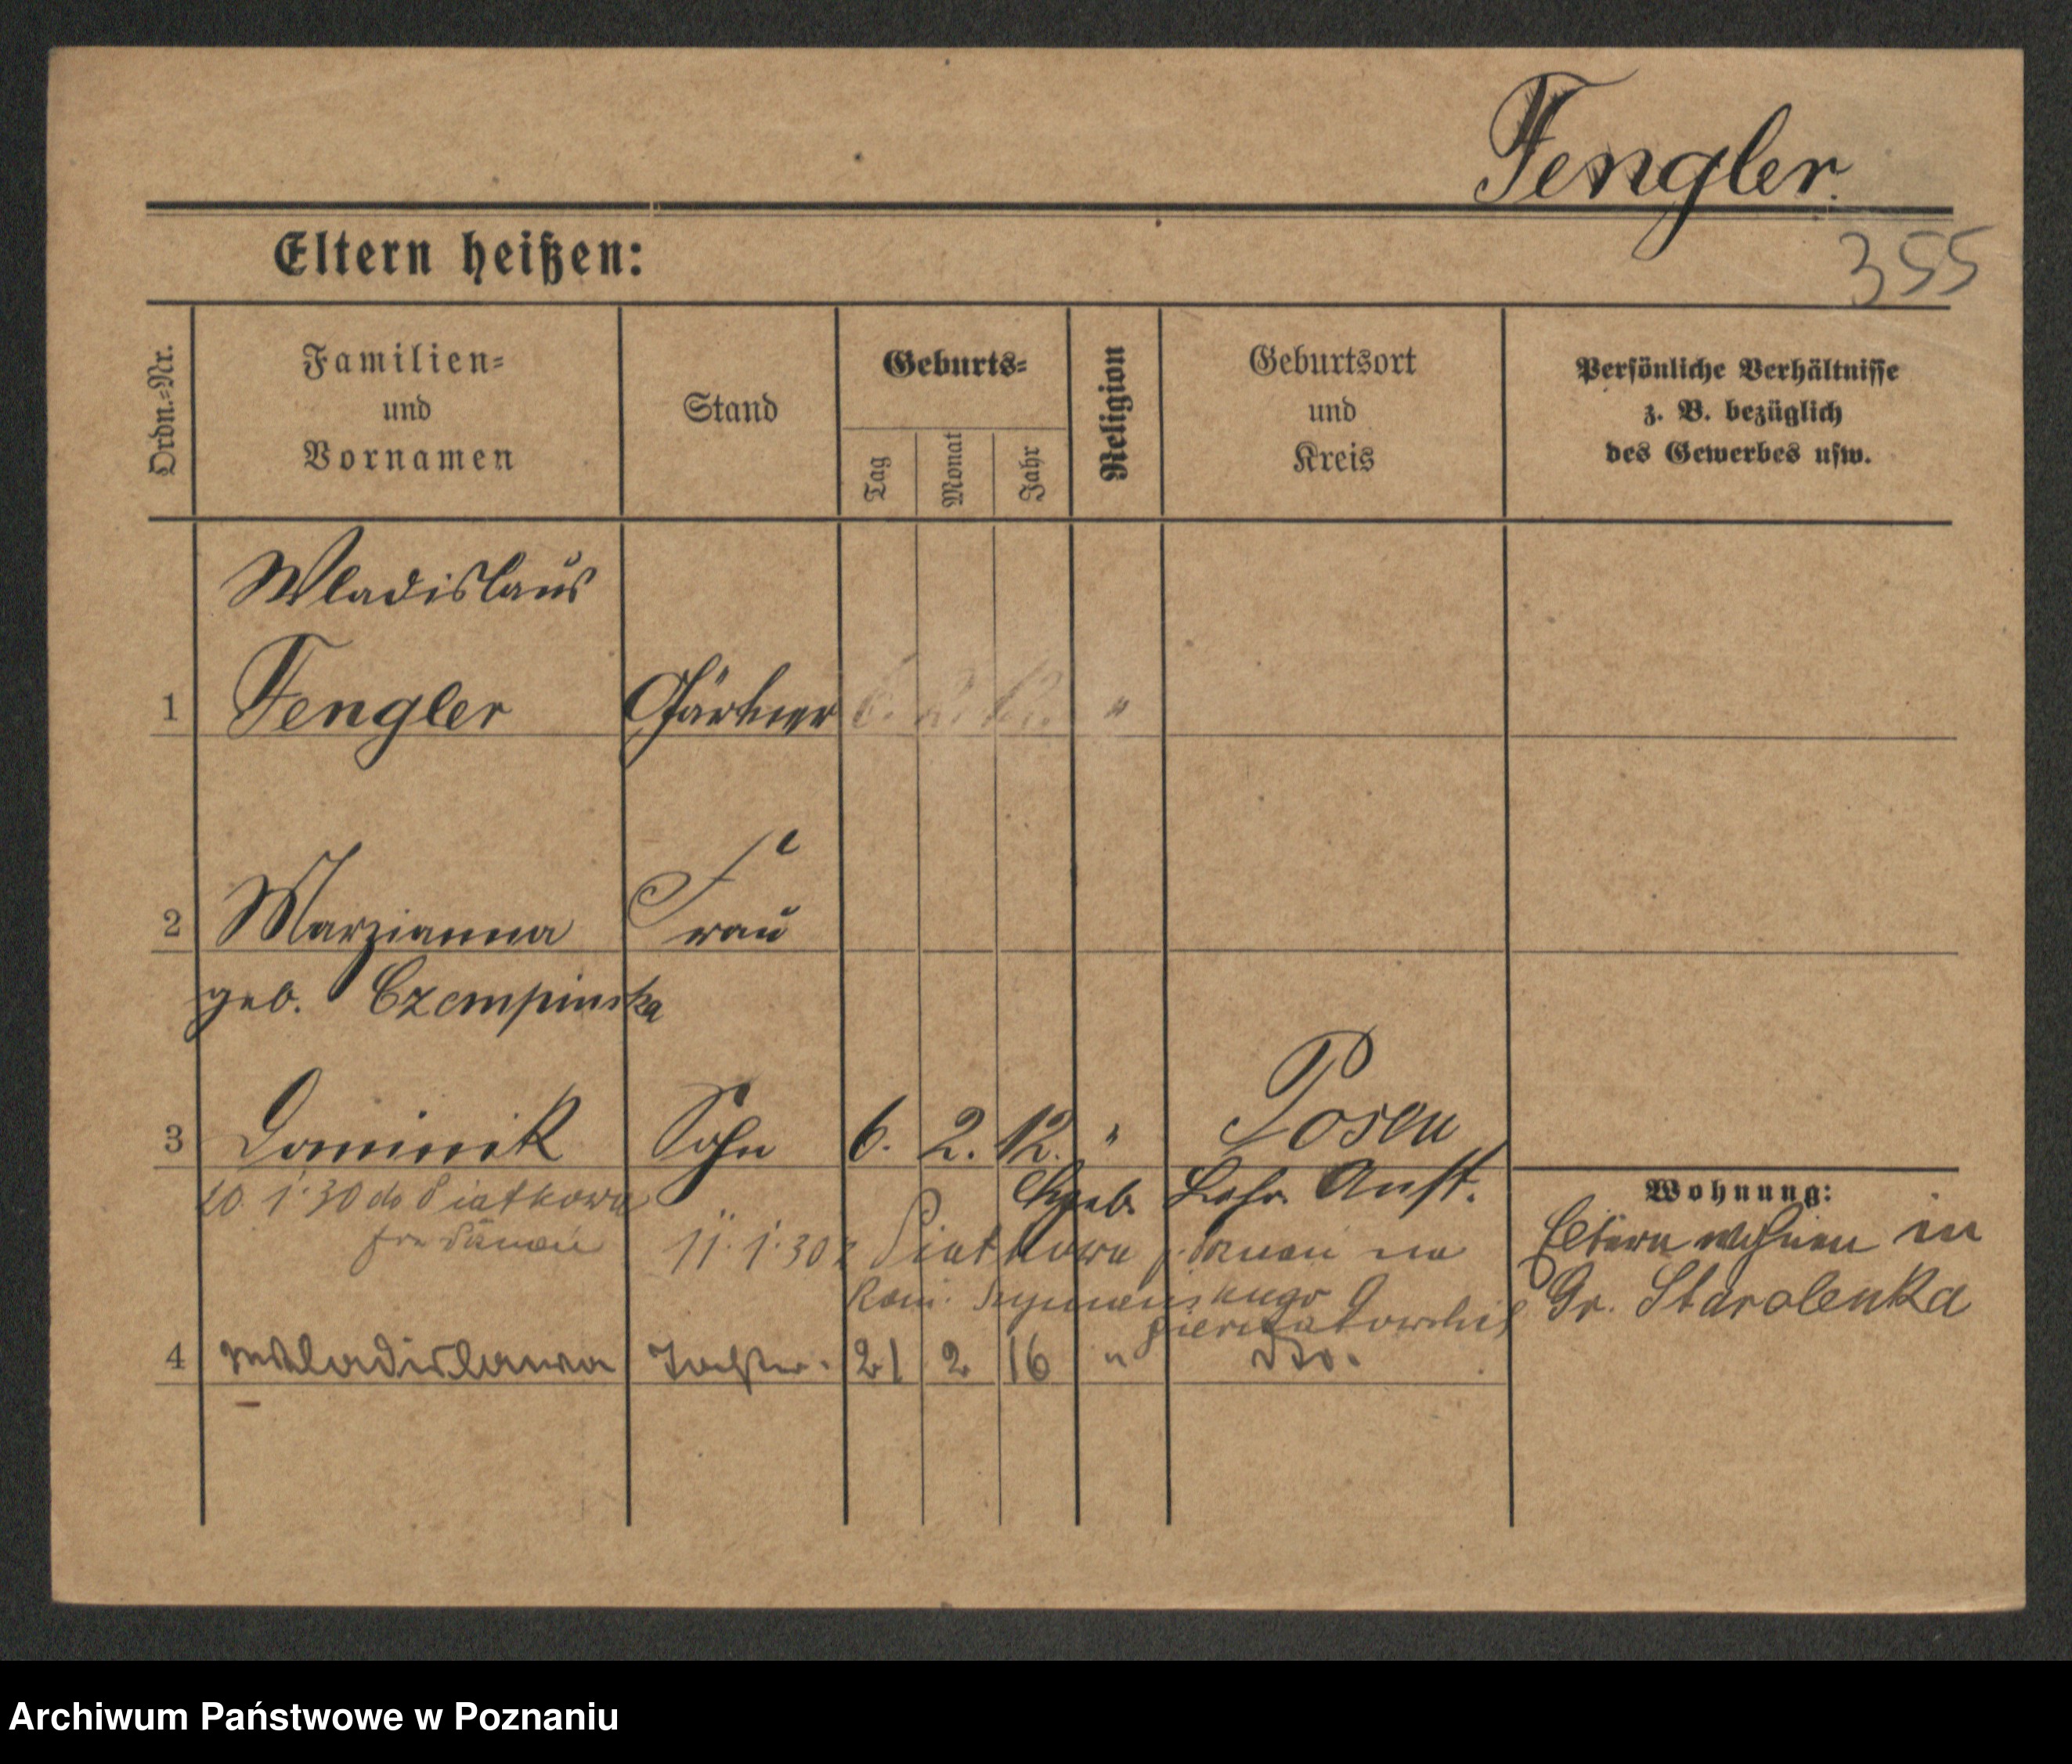 Fengler.
355
Eltern heißen:
Ordn.=Nr.
Familien=
und
Vornamen
Stand
Geburts=
Tag
Monat
Jahr
Religion
Geburtsort
und
Kreis
Persönliche Verhältnisse
z. B. bezüglich
des Gewerbes usw.
Wladislaus
1 Fengler Gärtner 6. 2. 12. "
2 Marzianna Frau
geb. Czempinska
3 Dominik Sohn 6. 2. 12. " Posen
Hgeb. Lehr. Anst.
20. 1. 30 do Piatkowa
11. 1. 30 z Piatkowa p. Poznań na
4 Wladislawa Tochter. 21 2 16 " dto.
Wohnung:
Eltern wohnen in
Gr. Starolenka
Archiwum Państwowe w Poznaniu